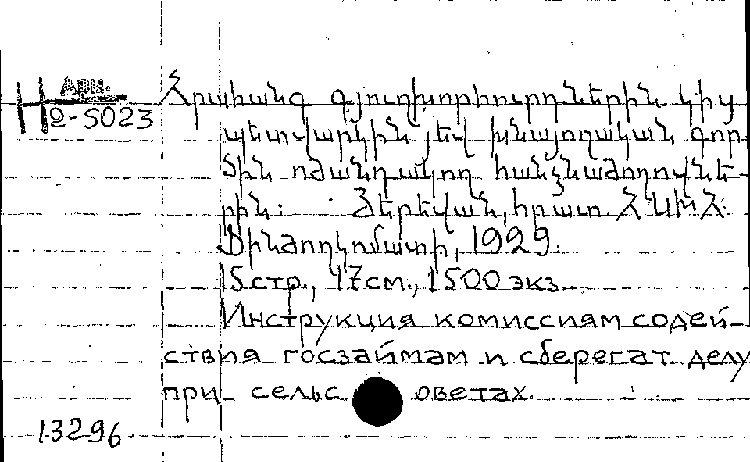 Арм.
№-5023
Հրահանգ գյուղխորհուրդներին կից
պետվարկին յեվ խնայողական գոր-
ծին ոժանդակող հանձնաժողովնե-
րին: Յերեվան, հրատ. Հ.Ս.Խ.Հ.
Ֆինժողկոմատի, 1929.
15 стр., 17см., 1500 экз.
Инструкция комиссиям содей-
ствия госзаймам и сберегат. делу
при сельсоветах.
13296.